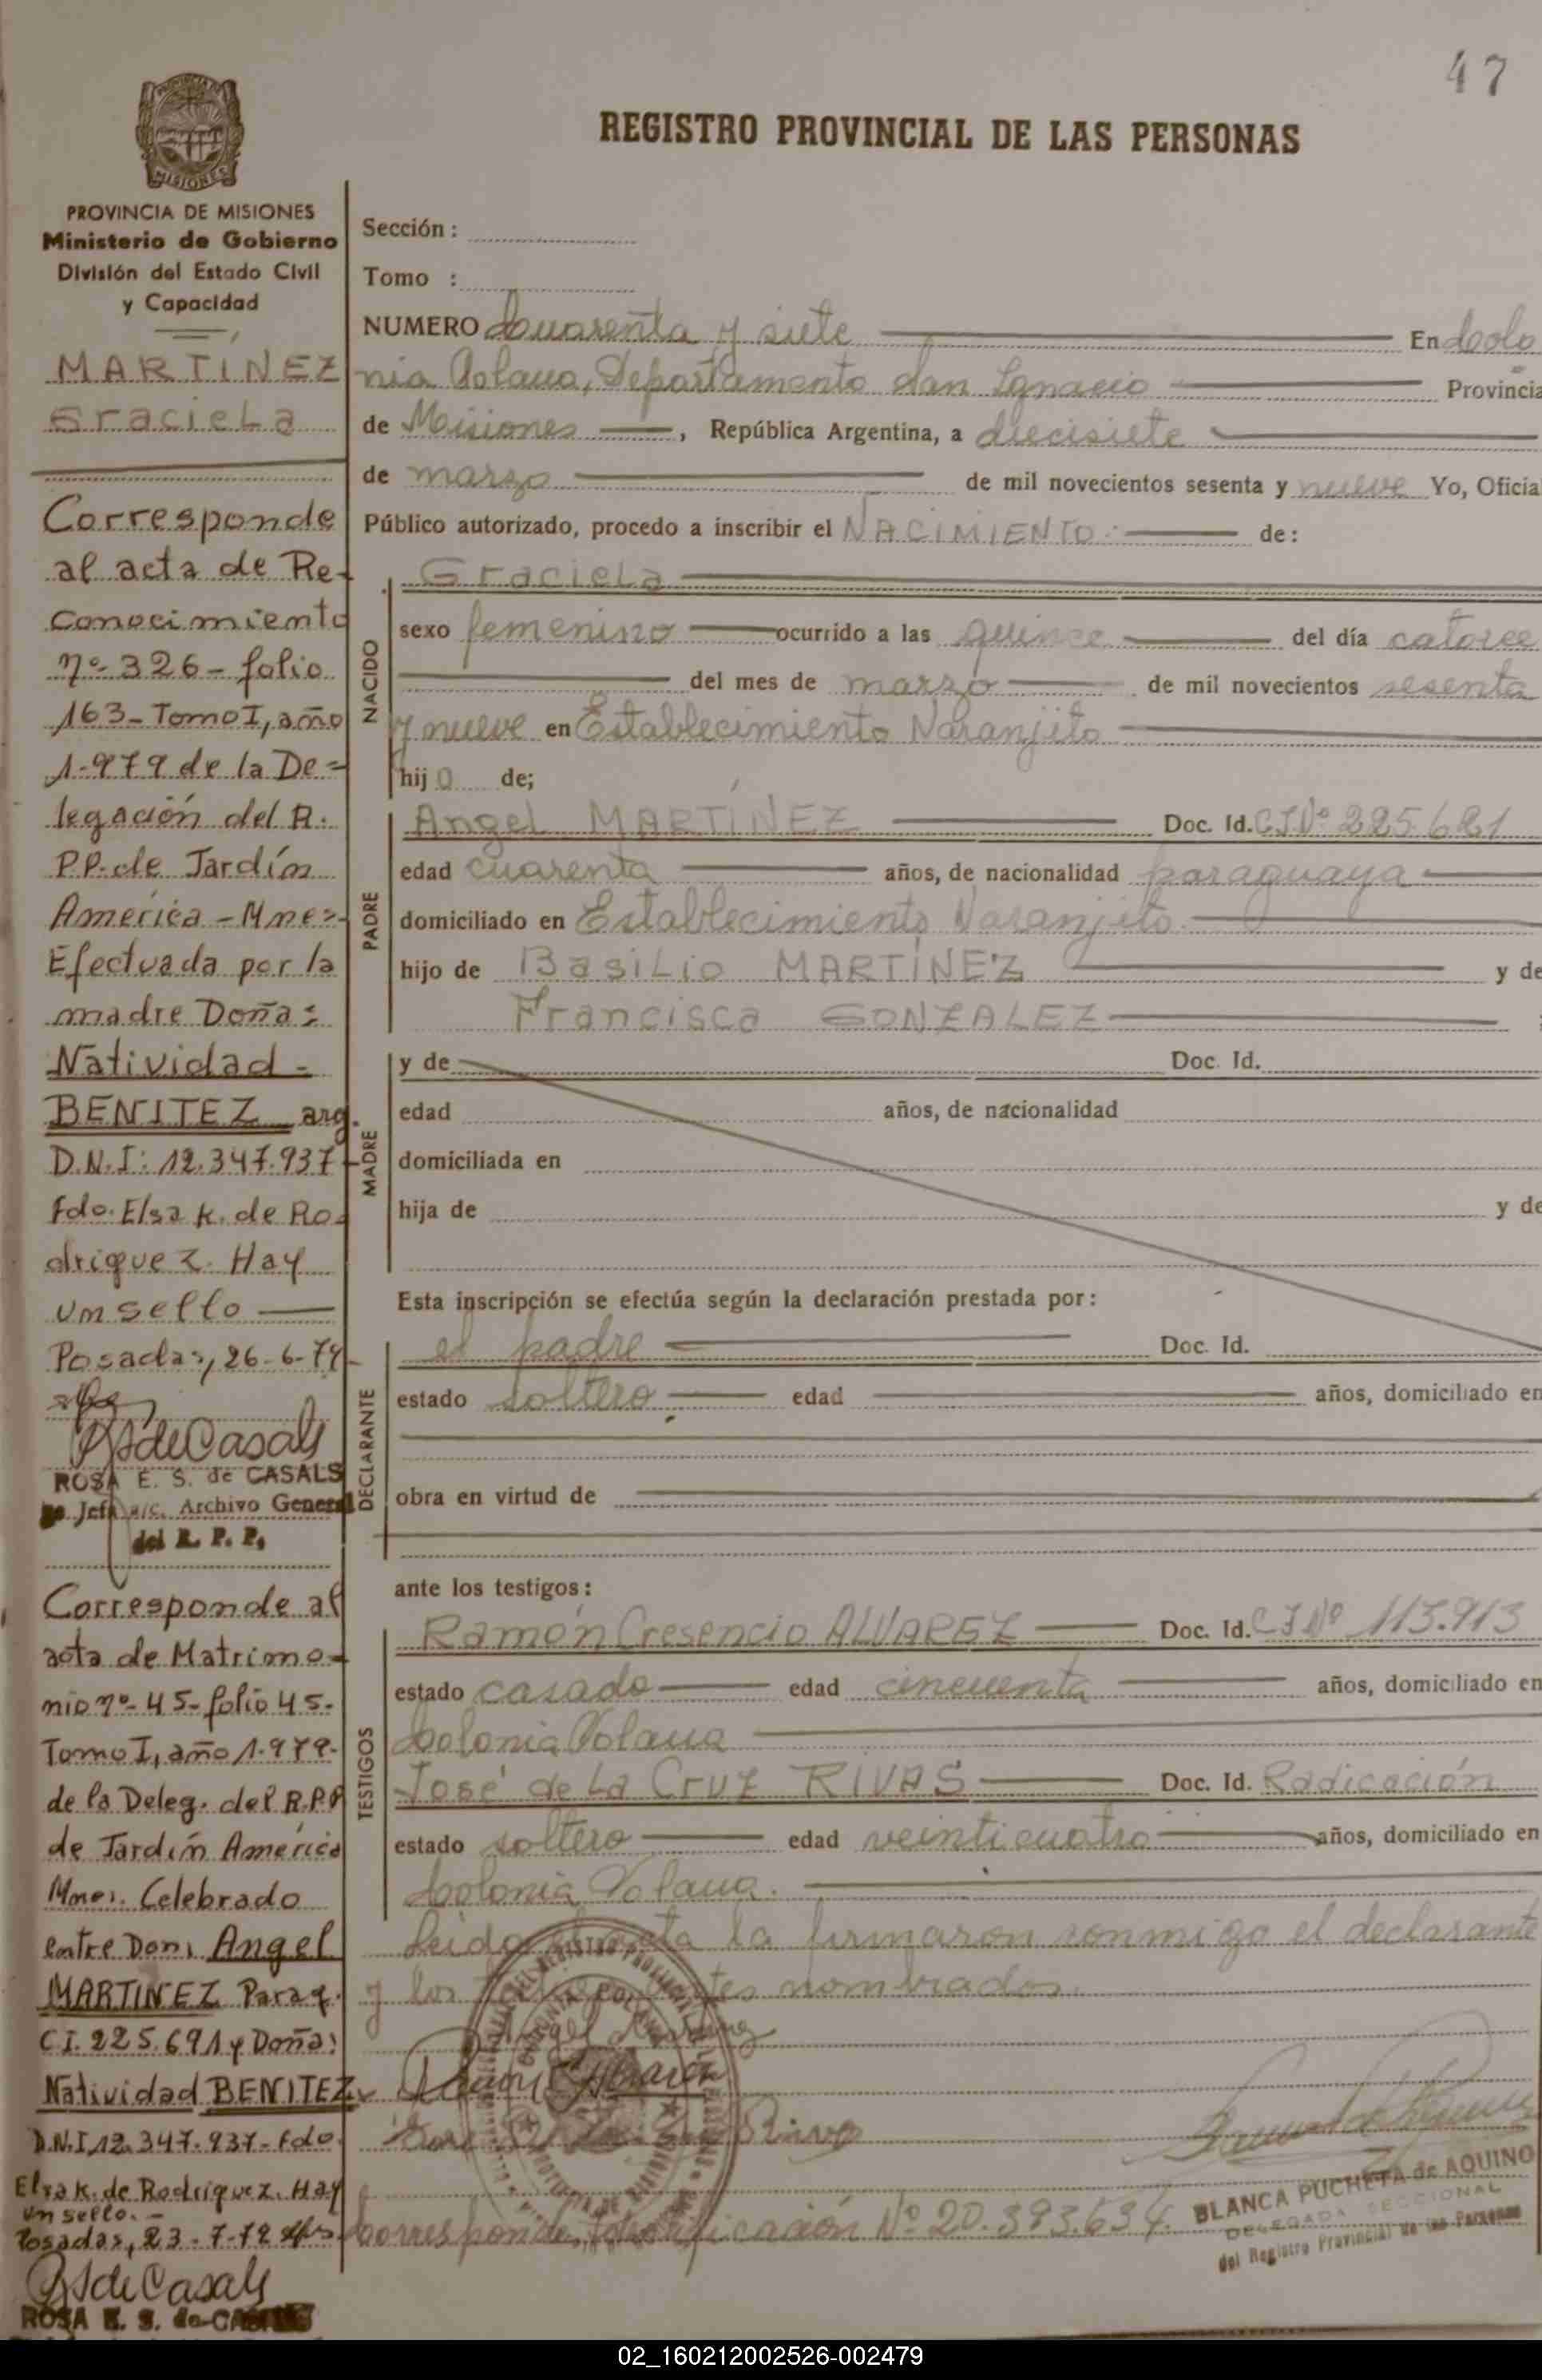 47
REGISTRO PROVINCIAL DE LAS PERSONAS
MISIONES
PROVINCIA DE MISIONES
Ministerio de Gobierno
División del Estado Civil
y Capacidad
MARTÍNEZ
Graciela
Corresponde
al acta de Re-
conocimiento
nº 326 - folio
163 - Tomo I, año
1.979 de la De=
legación del R.
P.P. de Jardín
América - Mnes
Efectuada por la
madre Doña:
Natividad -
BENITEZ arg.
D.N.I: 12.347.937 -
Fdo. Elsa K. de Ro-
driguez. Hay
un sello
Posadas, 26-6-79
RSdeCasals
ROSA E. S. de CASALS
Jefa a/c. Archivo General
del R. P. P.
Corresponde al
acta de Matrimo-
nio nº 45 - folio 45 -
Tomo I, año 1.979 -
de la Deleg. del R.P.P
de Jardín América
Mnes. Celebrado
entre Don: Angel
MARTINEZ Parag.
C.I. 225.691 y Doña:
Natividad BENITEZ
D.N.I 12.347.937 - fdo.
Elsa K. de Rodriguez. Hay
un sello. -
Posadas, 23-7-79
RSdeCasals
ROSA E. S. de CASALS
Sección :
Tomo :
NUMERO Cuarenta y siete En Colo
nia Polana, Departamento San Ignacio Provincia
de Misiones , República Argentina, a diecisiete
de marzo de mil novecientos sesenta y nueve Yo, Oficial
Público autorizado, procedo a inscribir el NACIMIENTO: de:
NACIDO
Graciela
sexo femenino ocurrido a las quince del día catorce
del mes de marzo de mil novecientos sesenta
y nueve en Establecimiento Naranjito
hij a de;
PADRE
Angel MARTÍNEZ Doc. Id. C.I Nº 225.621
edad cuarenta años, de nacionalidad paraguaya
domiciliado en Establecimiento Naranjito.
hijo de Basilio MARTÍNEZ y de
Francisca GONZALEZ
MADRE
y de Doc. Id.
edad años, de nacionalidad
domiciliada en
hija de y de
Esta inscripción se efectúa según la declaración prestada por:
DECLARANTE
el padre Doc. Id.
estado soltero edad años, domiciliado en
obra en virtud de
ante los testigos:
TESTIGOS
Ramón Cresencio ALVAREZ Doc. Id. C.I Nº 113.913
estado casado edad cincuenta años, domiciliado en
Colonia Polana
José de La Cruz RIVAS Doc. Id. Radicación
estado soltero edad veinticuatro años, domiciliado en
Colonia Polana.
Leida el acta la firmaron conmigo el declarante
y los nombrados.
Angel Martinez
BLANCA PUCHETA de AQUINO
DELEGADA SECCIONAL
del Registro Provincial de las Personas
Corresponde Identificación Nº 20.393.634.
02_160212002526-002479